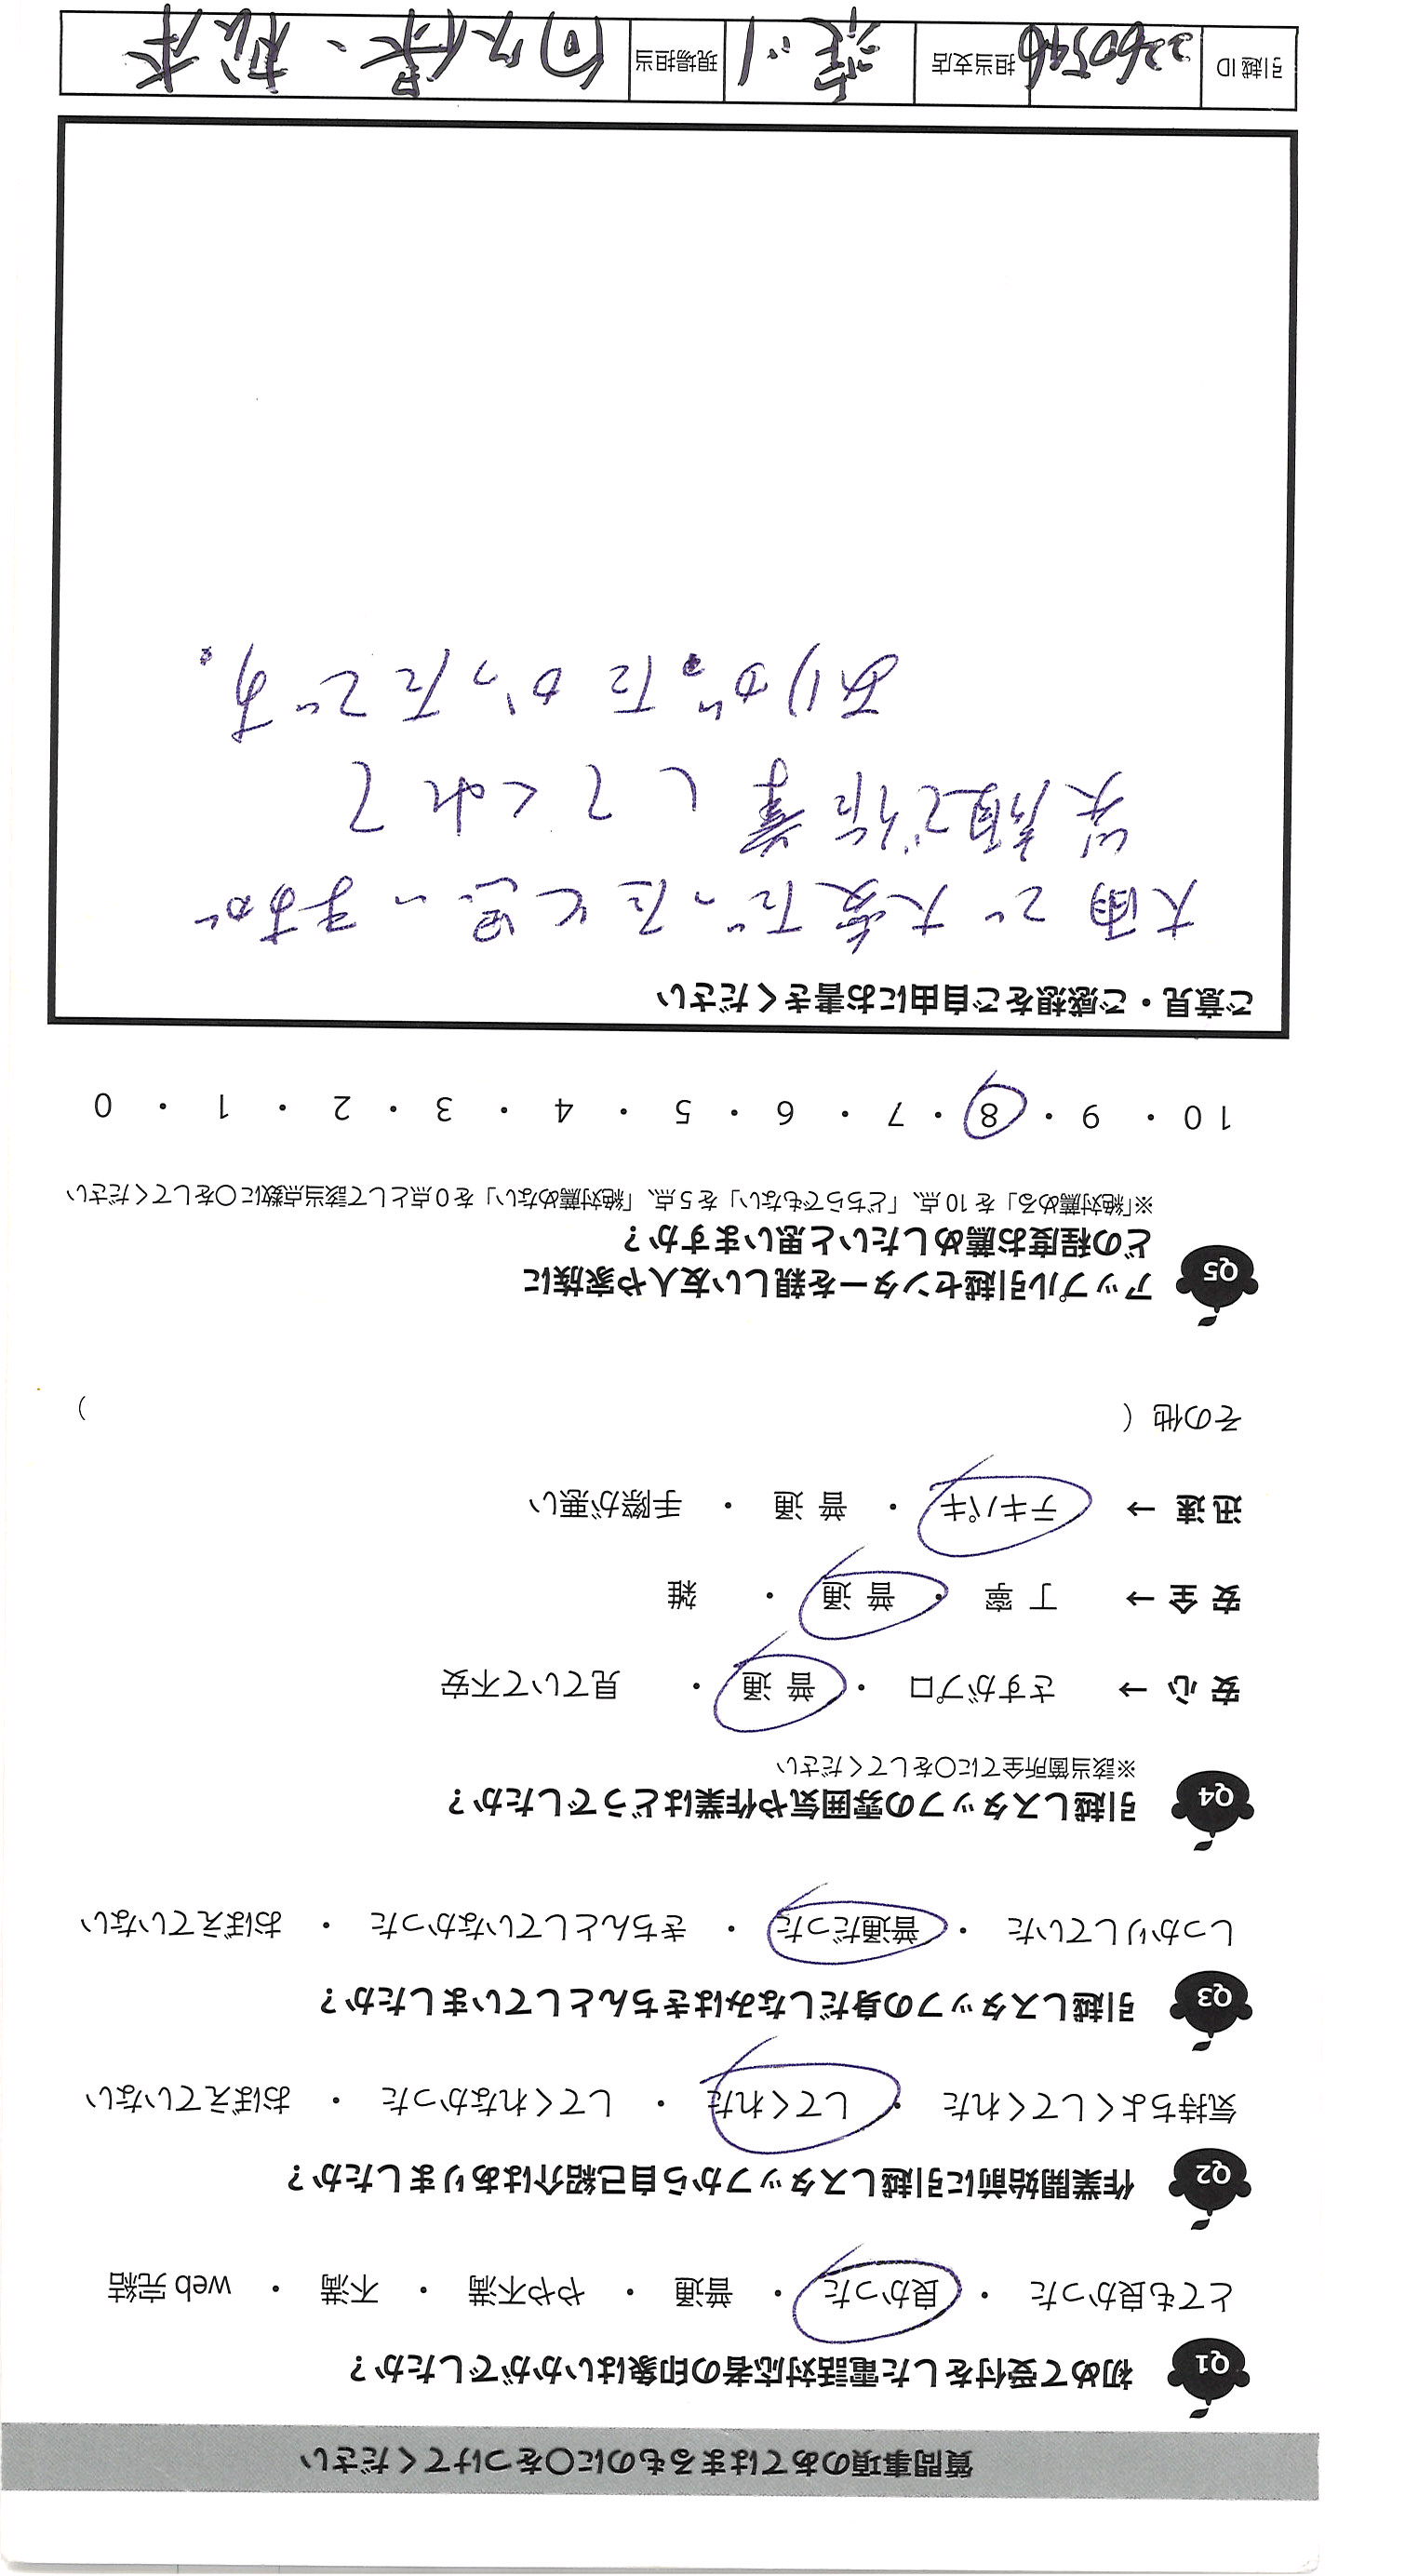 質問事項のあてはまるものに○をつけてください
Q1 初めて受付をした電話対応者の印象はいかがでしたか？
とても良かった ・ 良かった ・ 普通 ・ やや不満 ・ 不満 ・ web 完結
Q2 作業開始前に引越しスタッフから自己紹介はありましたか？
気持ちよくしてくれた ・ してくれた ・ してくれなかった ・ おぼえていない
Q3 引越しスタッフの身だしなみはきちんとしていましたか？
しっかりしていた ・ 普通だった ・ きちんとしていなかった ・ おぼえていない
Q4 引越しスタッフの雰囲気や作業はどうでしたか？
※該当箇所全てに○をしてください
安 心 → さすがプロ ・ 普 通 ・ 見ていて不安
安 全 → 丁 寧 ・ 普 通 ・ 雑
迅 速 → テキパキ ・ 普 通 ・ 手際が悪い
その他（ ）
Q5 アップル引越センターを親しい友人や家族に
どの程度お薦めしたいと思いますか？
※「絶対薦める」を 10 点、「どちらでもない」を 5 点、「絶対薦めない」を 0 点として該当点数に○をしてください
10 ・ 9 ・ 8 ・ 7 ・ 6 ・ 5 ・ 4 ・ 3 ・ 2 ・ 1 ・ 0
ご意見・ご感想をご自由にお書きください
大雨で大変だったと思いますが
笑顔で作業してくれて
ありがたかったです。
引越 ID 2260546 担当支店 荒川 現場担当 向久保、松本